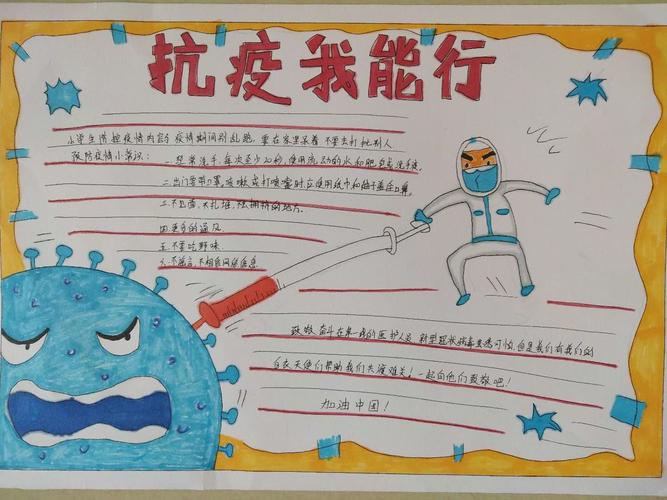 抗疫我能行
小学生防控疫情内容 疫情期间别乱跑,要在家里呆着 不要去打扰别人
预防疫情小常识: 一.经常洗手,每次至少20秒,使用流动的水和肥皂或洗手液
二.出门要带口罩,咳嗽或打喷嚏时,应使用纸巾和袖子遮住口鼻.
三.不凡面,不扎堆,去拥挤的地方.
四.更多的通风
五.不要吃野味
六.不谣言,不相信网络信息
致敬奋斗在第一线的医护人员 新型冠状病毒虽然可怕,但是我们有我们的
白衣天使们帮助我们共渡难关!一起向他们致敬吧!
加油中国!